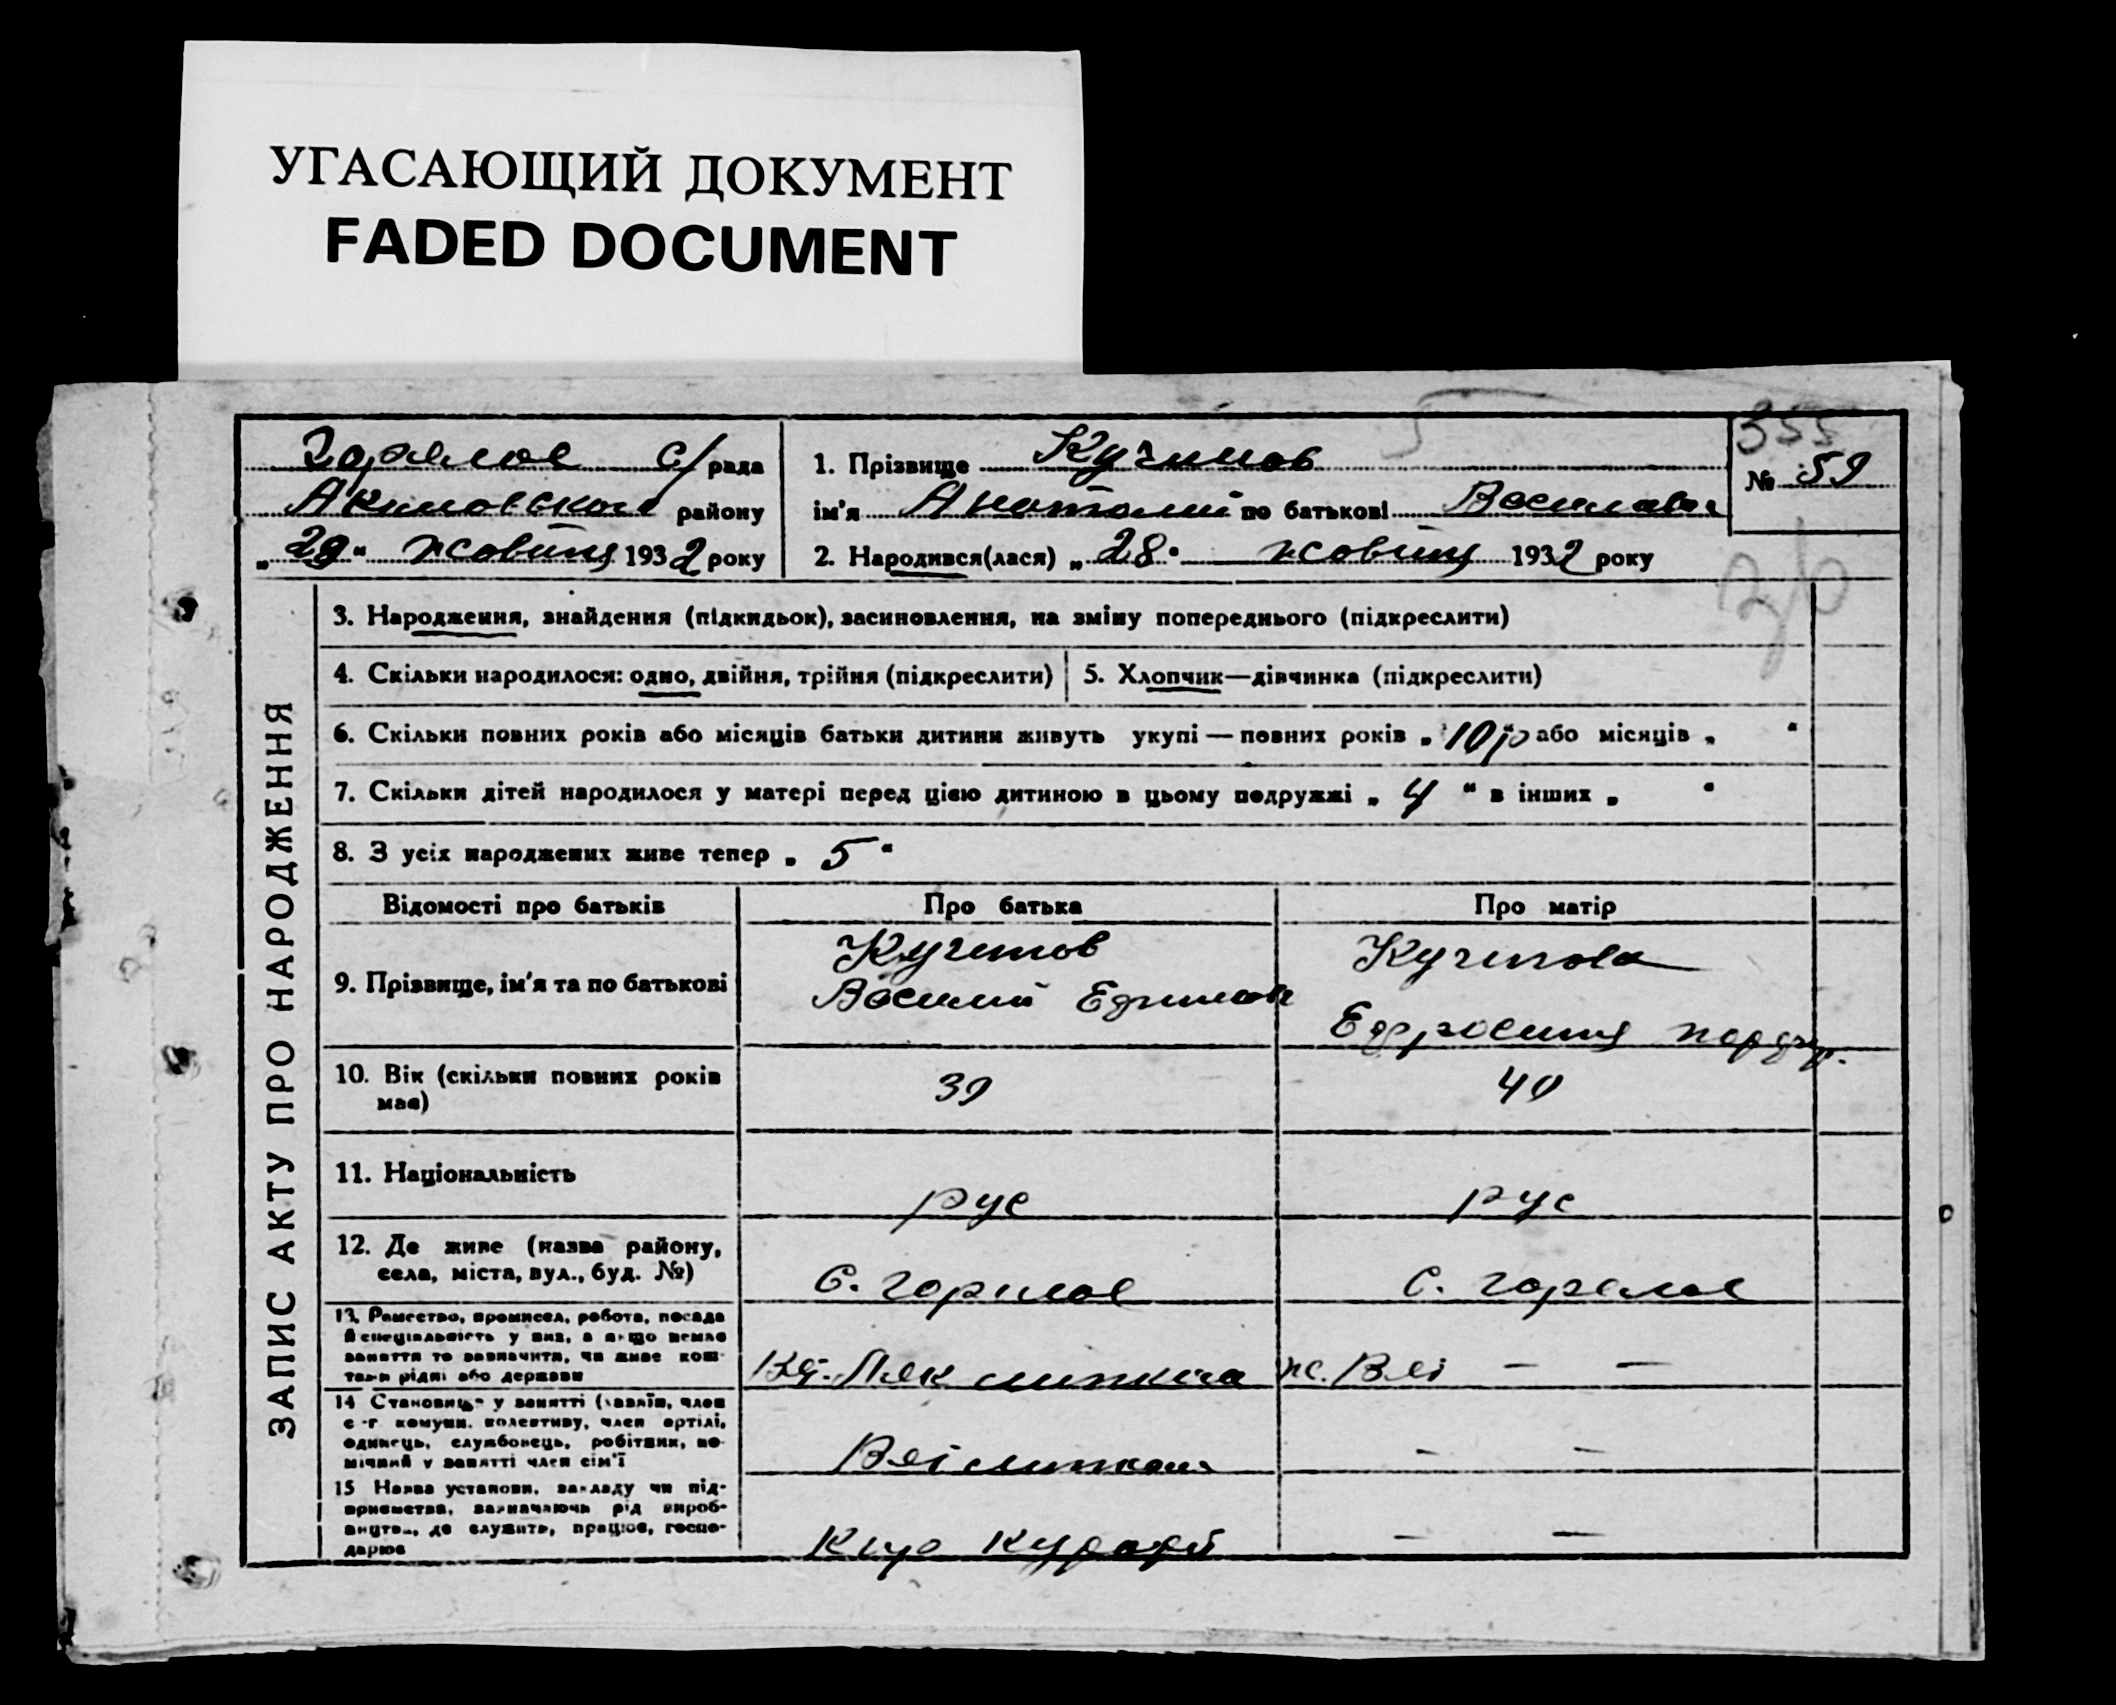 УГАСАЮЩИЙ ДОКУМЕНТ
FADED DOCUMENT
355
Горелое с/рада
Акимовского району
„29“ жовтня 1932 року
1. Прізвище
ім'я Анатолий по батькові
2. Народився(лася) „28“ жовтня 1932 року
№ 59
ЗАПИС АКТУ ПРО НАРОДЖЕННЯ
3. Народження, знайдення (підкидьок), засиновлення, на зміну попереднього (підкреслити)
4. Скільки народилося: одно, двійня, трійня (підкреслити)
5. Хлопчик—дівчинка (підкреслити)
6. Скільки повних років або місяців батьки дитини живуть укупі — повних років „10 або місяців „ “
7. Скільки дітей народилося у матері перед цією дитиною в цьому подружжі „ 4 “ в інших „ “
8. З усіх народжених живе тепер „ 5 “
Відомості про батьків
Про батька
Про матір
9. Прізвище, ім'я та по батькові
Василий
10. Вік (скільки повних років має)
39
40
11. Національність
рус
рус
12. Де живе (назва району, села, міста, вул., буд. №)
с. Горелое
с. Горелое
13. Ремество, промисел, робота, посада й спеціальність у них, а якщо немає заняття то зазначити, чи живе коштами рідні або держави
— —
14 Становище у занятті (хазяїн, член с.-г. комуни, колективу, член артілі, одинець, службовець, робітник, помічний у занятті член сім'ї
— —
15 Назва установи, закладу чи підприємства, зазначаючи рід виробництва, де служить, працює, господарює
— —